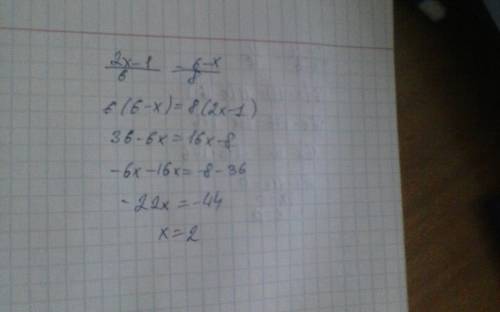 2x-1/6 = 6-x/8
6(6-x)=8(2x-1)
36-6x=16x-8
-6x-16x=-8-36
-22x=-44
x=2